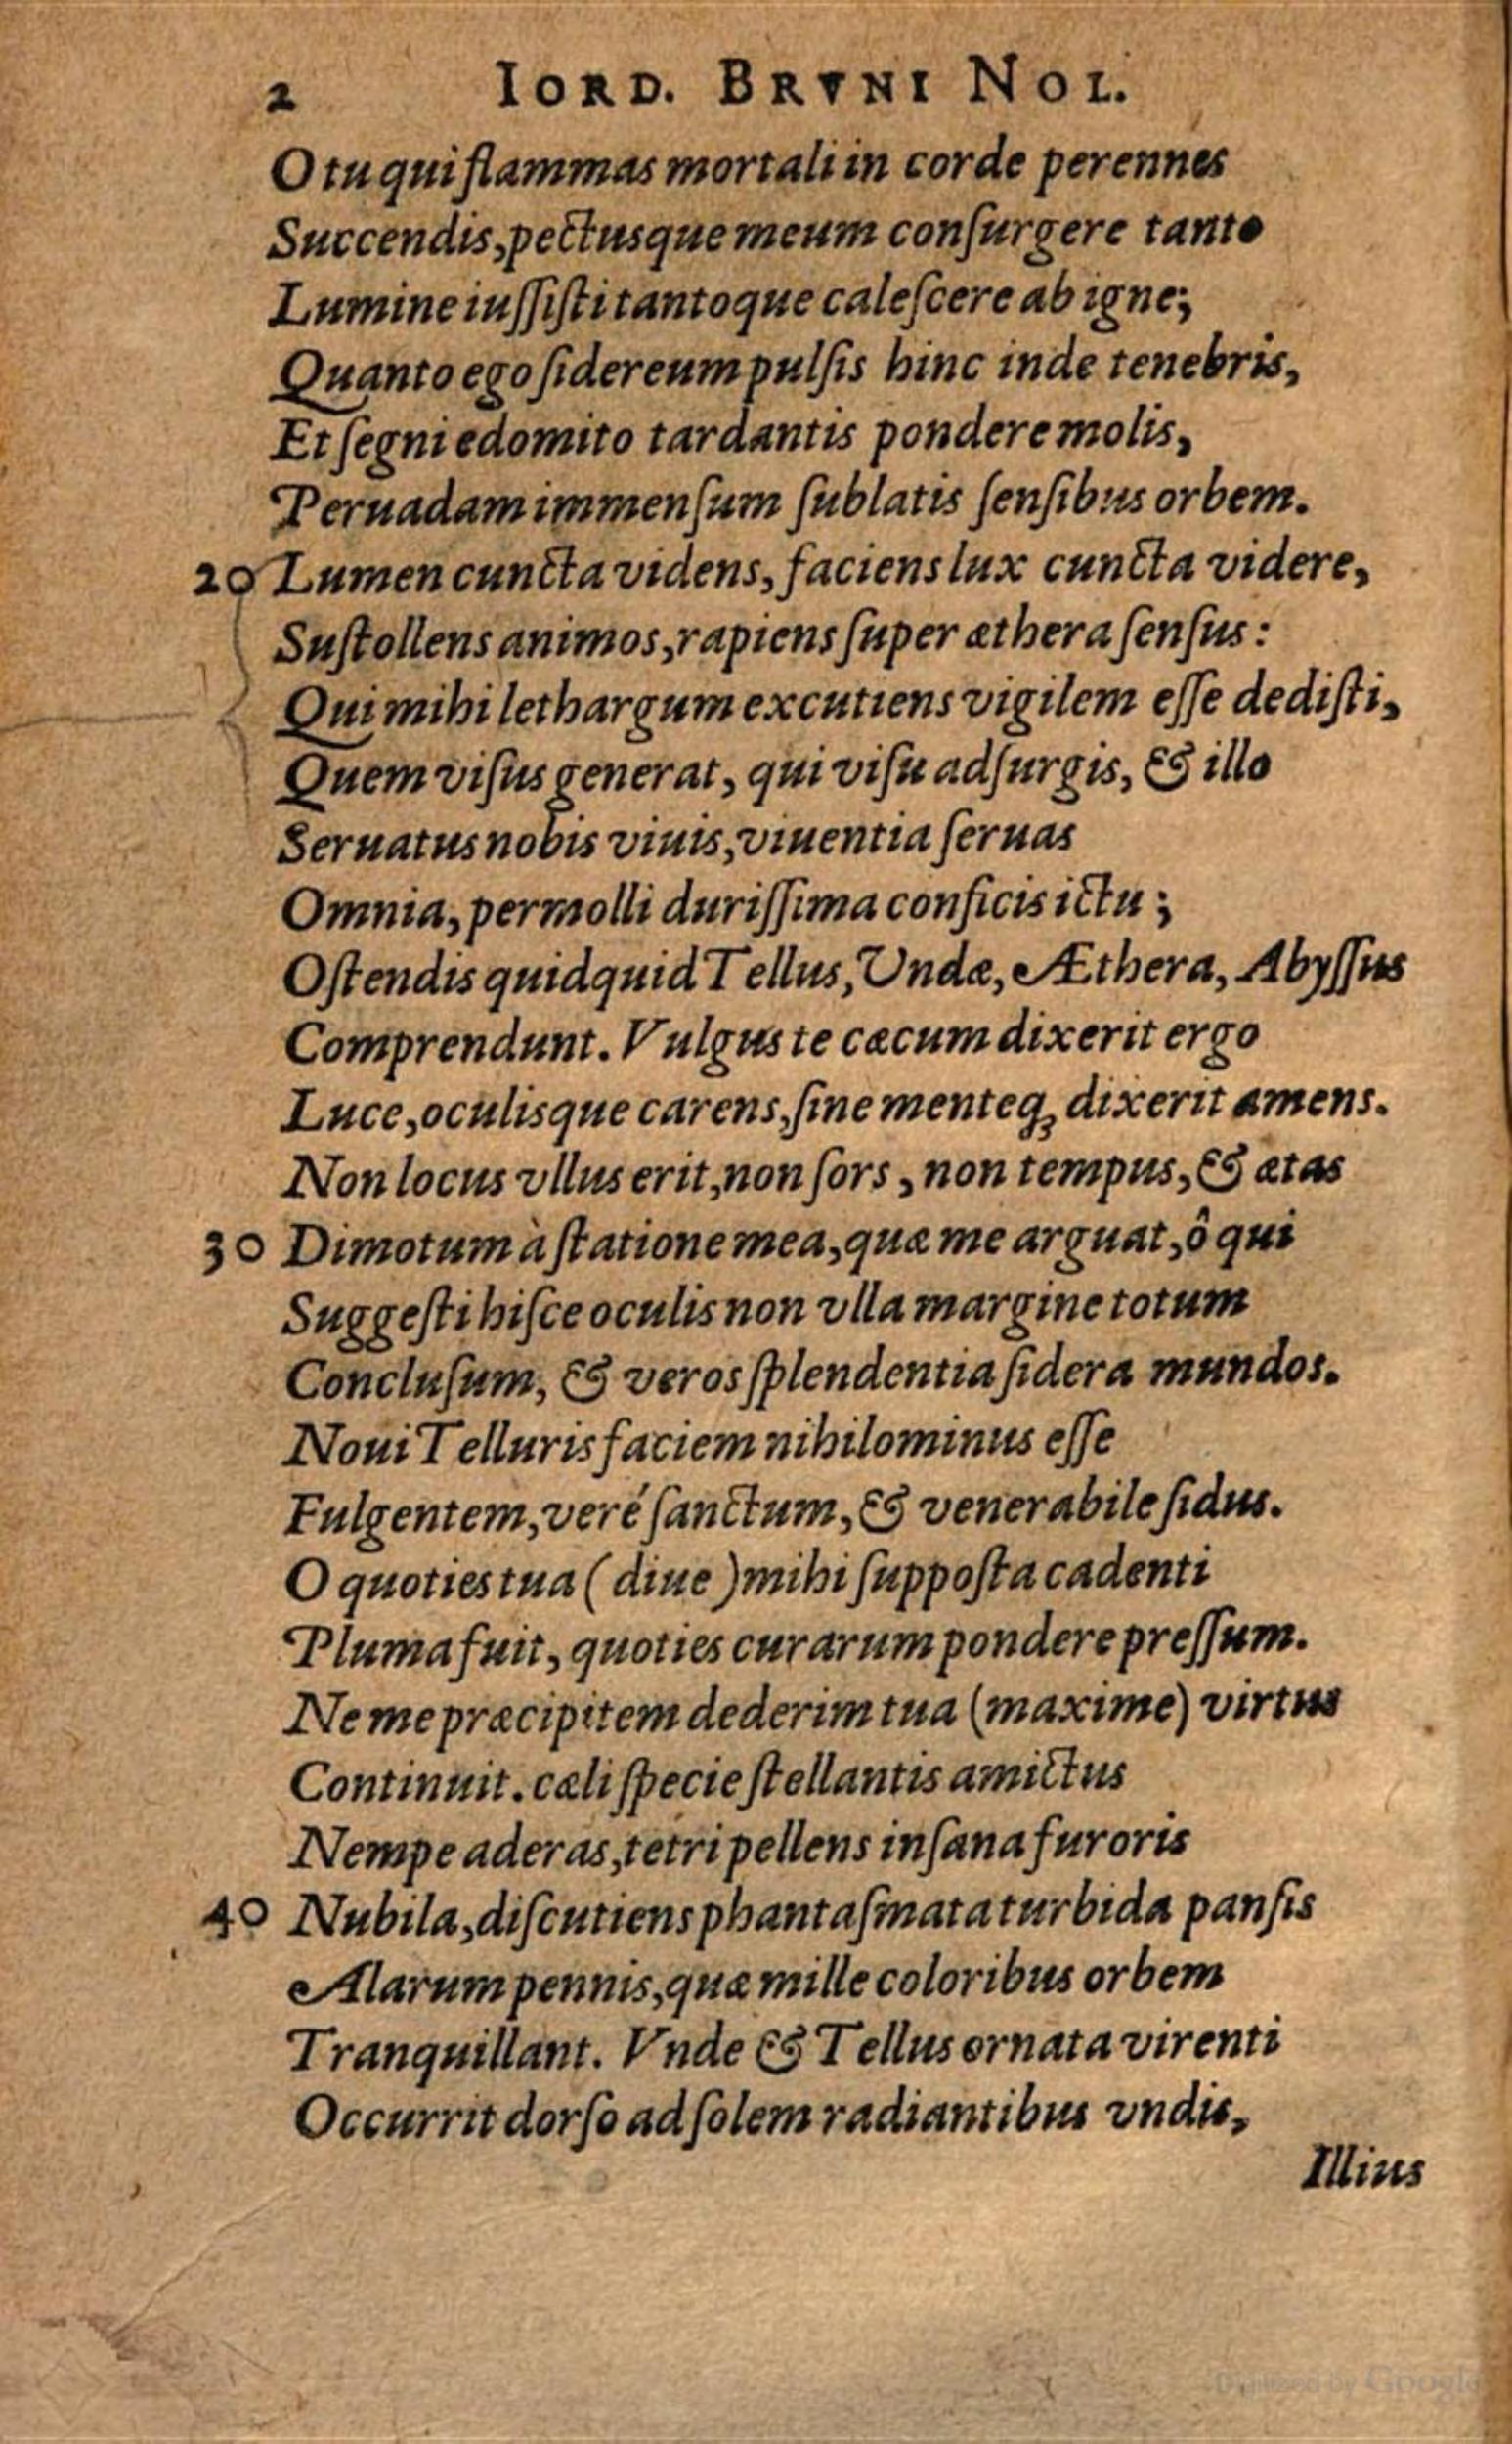 2 IORD. BRVNI NOL.
O tu qui flammas mortali in corde perennes
Succendis, pectusque meum conſurgere tanto
Lumine iuſſiſti tantoque caleſcere ab igne;
Quanto ego ſidereum pulſis hinc inde tenebris,
Et ſegni edomito tardantis pondere molis,
Peruadam immenſum ſublatis ſenſibus orbem.
20 Lumen cuncta videns, faciens lux cuncta videre,
Suſtollens animos, rapiens ſuper æthera ſenſus:
Qui mihi lethargum excutiens vigilem eſſe dediſti,
Quem viſus generat, qui viſu adſurgis, & illo
Seruatus nobis viuis, viuentia ſeruas
Omnia, permolli duriſſima conficis ictu;
Oſtendis quidquid Tellus, Undæ, Æthera, Abyſſus
Comprendunt. Vulgus te cæcum dixerit ergo
Luce, oculisque carens, ſine menteq; dixerit amens.
Non locus vllus erit, non ſors, non tempus, & ætas
30 Dimotum à ſtatione mea, quæ me arguat, ô qui
Suggeſti hiſce oculis non vlla margine totum
Concluſum, & veros ſplendentia ſidera mundos.
Noui Telluris faciem nihilominus eſſe
Fulgentem, veré ſanctum, & venerabile ſidus.
O quoties tua (diue) mihi ſuppoſta cadenti
Pluma fuit, quoties curarum pondere preſſum.
Ne me præcipitem dederim tua (maxime) virtus
Continuit. cæli ſpecie ſtellantis amictus
Nempe aderas, tetri pellens inſana furoris
40 Nubila, diſcutiens phantaſmata turbida panſis
Alarum pennis, quæ mille coloribus orbem
Tranquillant. Vnde & Tellus ornata virenti
Occurrit dorſo ad ſolem radiantibus vndis,
Illius
Digitized by Google